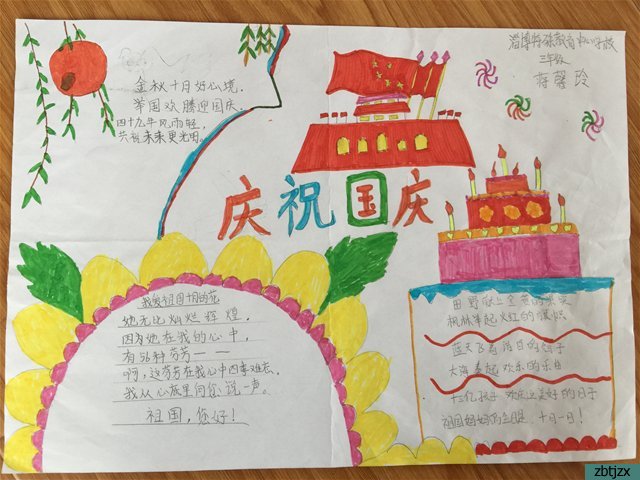 淄博特殊教育中心学校
三年级
蒋馨玲
金秋十月好心境,
举国欢腾迎国庆.
四十九年风雨轻,
共祝未来更光明。
庆祝国庆
我爱祖国十月的花
她无比灿烂辉煌,
因为她在我的心中,
有56种芬芳——
啊,这芬芳在我心中四季难忘,
我从心底里向您说一声。
祖国,您好!
田野献上金黄的果实
枫林举起火红的旗帜
蓝天飞着洁白的鸽子
大海奏起欢乐的乐曲
十三亿孩子 欢庆这美好的日子
祖国妈妈的生日,十月一日!
zbtjzx